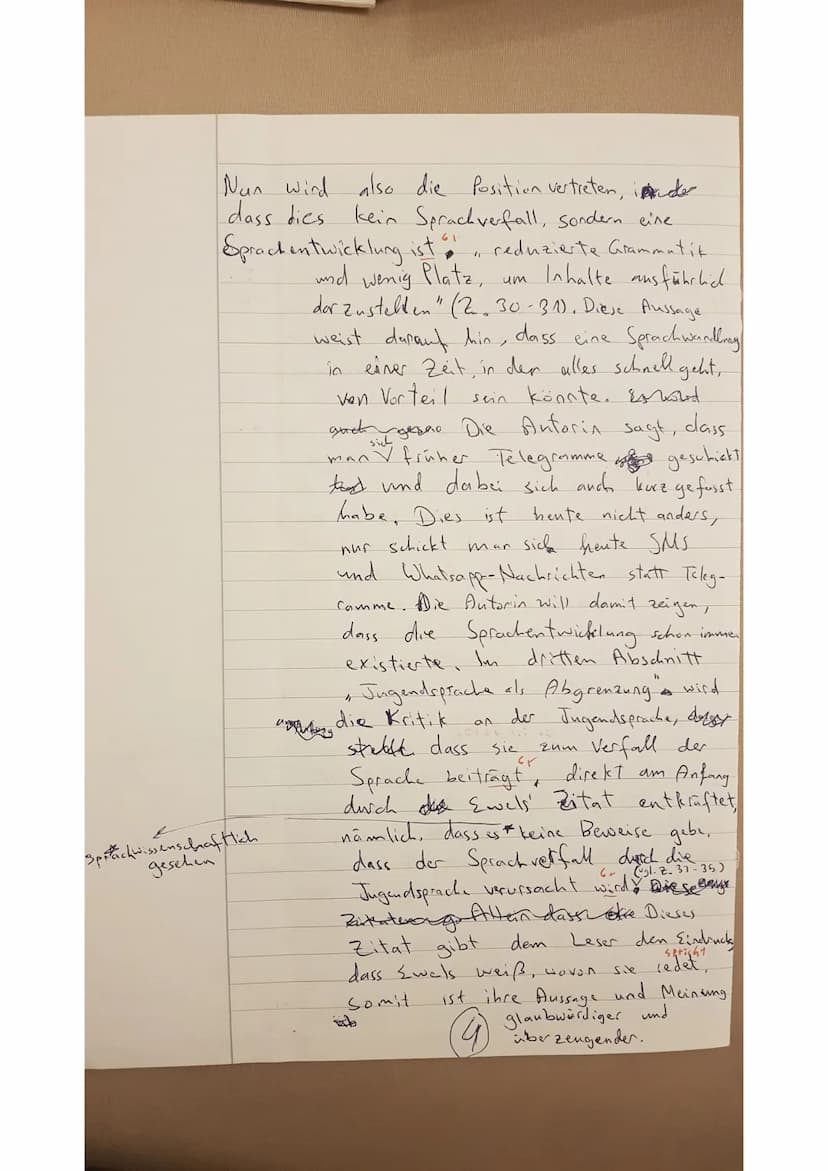 Nun wird also die Position vertreten,
dass dies kein Sprachverfall, sondern eine
Sprachentwicklung ist, „reduzierte Grammatik
und wenig Platz, um Inhalte ausführlich
darzustellen" (Z. 30-31). Diese Aussage
weist darauf hin, dass eine Sprachwandlung
in einer Zeit, in der alles schnell geht,
von Vorteil sein könnte. Es wird
auch genau Die Autorin sagt, dass
sich
man früher Telegramme geschickt
und dabei sich auch kurz gefasst
habe. Dies ist heute nicht anders,
nur schickt man sich heute SMS
und Whatsapp-Nachrichten statt Teleg-
ramme. Die Autorin will damit zeigen,
dass die Sprachentwicklung schon immer
existierte. Im dritten Abschnitt
„Jugendsprache als Abgrenzung" wird
die Kritik an der Jugendsprache,
dass sie zum Verfall der
Gr
Sprache beiträgt, direkt am Anfang
durch Ewels' Zitat entkräftet,
nämlich, dass es* keine Beweise gebe,
*sprachwissenschaftlich
gesehen
dass der Sprachverfall durch die
(vgl. Z. 33-35)
Gr
Jugendsprache verursacht wird. Diese
Allein dass die Dieses
Zitat gibt dem Leser den Eindruck,
spricht
dass Ewels weiß, wovon sie redet,
somit ist ihre Aussage und Meinung
glaubwürdiger und
4
überzeugender.